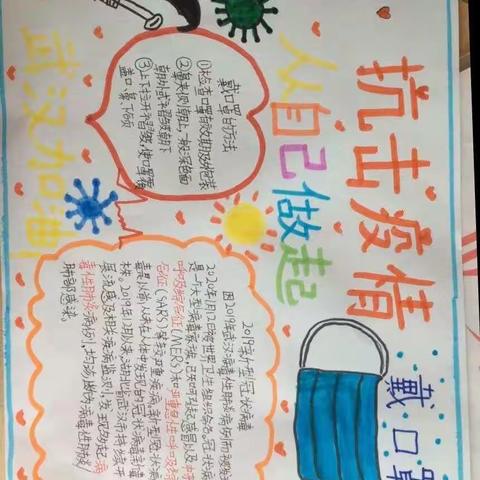 抗击疫情
从自己做起
武汉加油
戴口罩的方法
①检查口罩有效期及外包装
②鼻夹侧朝上,一般深色面
朝外或褶皱朝下
③上下拉开褶皱,使口罩覆
盖口、鼻、下颌
戴口罩
2019新型冠状病毒
因2019年武汉病毒性肺炎病例而被发现
2020年1月12日被世界卫生组织命名。冠状病毒
是一个大型病毒家族,已知可引起感冒以及中东
呼吸综合征(MERS)和严重急性呼吸综
合征(SARS)等较严重疾病,新型冠状病
毒是以前从未在人体中发现的冠状病毒新毒
株。2019年12月以来,湖北省武汉市持续开
展流感及相关疾病监测,发现多起病
毒性肺炎病例,均诊断为病毒性肺炎/
肺部感染。